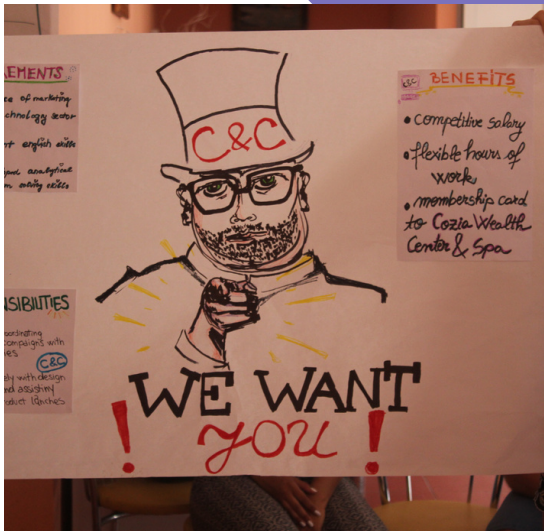 EMENTS
e of marketing
chnology sector
english skills
analytical
solving skills
C&C
C&C
BENEFITS
• competitive salary
• flexible hours of
work
• membership card
to Cozia Wealth
Center & Spa
NSIBILITIES
oordinating
campaigns with
ies
C&C
ly with design
nd assisting
oduct launches
WE WANT
! YOU !